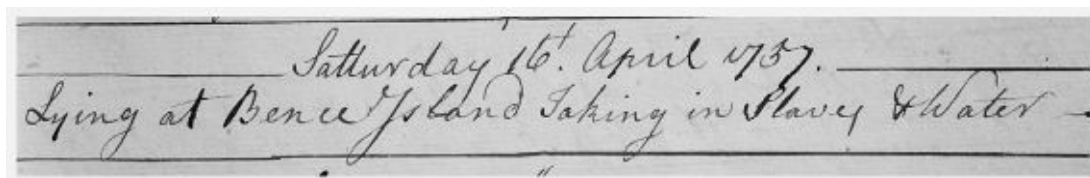 Satturday 16t. April 1757.
Lying at Bence Island Taking in Slaves & Water